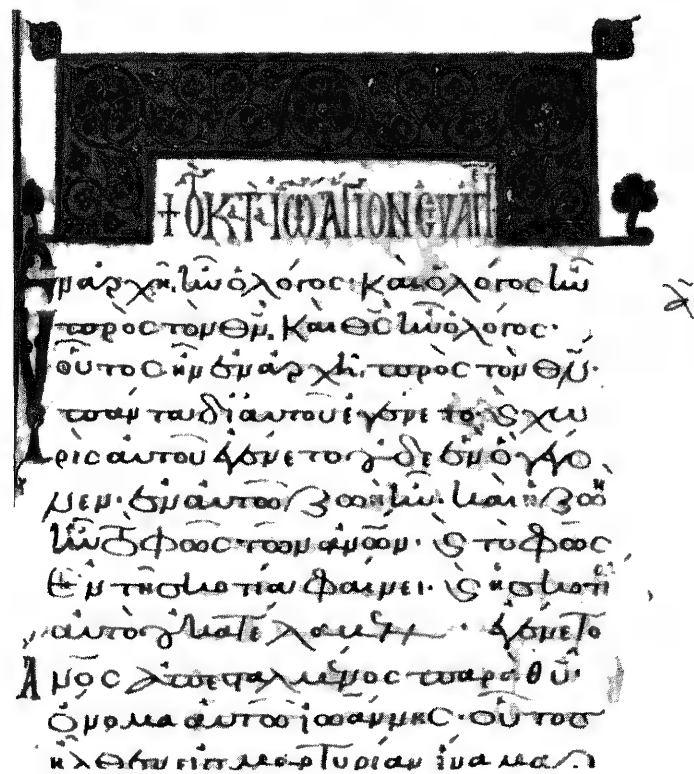 + ΤΟ ΚΤ ΙΩ ΑΓΙΟΝ ΕΥΑΓΓ
Ἐν ἀρχῆ, ἦν ὁ λόγος· καὶ ὁ λόγος ἦν
πρὸς τὸν θν̅. καὶ θς̅ ἦν ὁ λόγος·
οὗτος ἦν ἐν ἀρχῆ, πρὸς τὸν θν̅·
πάντα δι αὐτοῦ ἐγένετο· ϗ χω
ρὶς αὐτοῦ ἐγένετο οὐδὲ ἓν ὃ γέγο
νεν· ἐν αὐτῶ ζωὴ ἦν· καὶ ἡ ζωὴ
ἦν τὸ φῶς τῶν ἀνων· ϗ τὸ φῶς
ἐν τῆ σκοτία φαίνει· ϗ ἡ σκοτία
αὐτὸ οὐ κατέλαβεν· ἐγένετο
ἀνος ἀπεσταλμένος παρὰ θυ̅·
ὄνομα αὐτῶ ἰωάννης· οὗτος
ἦλθεν εἰς μαρτυρίαν ἵνα μαρ